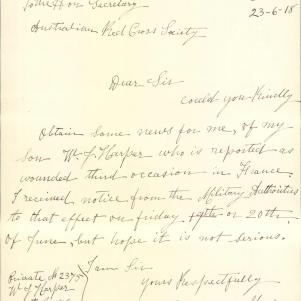 To the Hon Secretary
23-6-18
Australian Red Cross Society
Dear Sir
Could you Kindly
Obtain some news for me, of my
son W. J. Harper who is reported as
wounded third occasion in France.
I received notice from the Military Authorities
to that effect on Friday 19th or 20th
of June, but hope it is not serious.
I am Sir
Yours Respectfully
Private No 2375
W J Harper